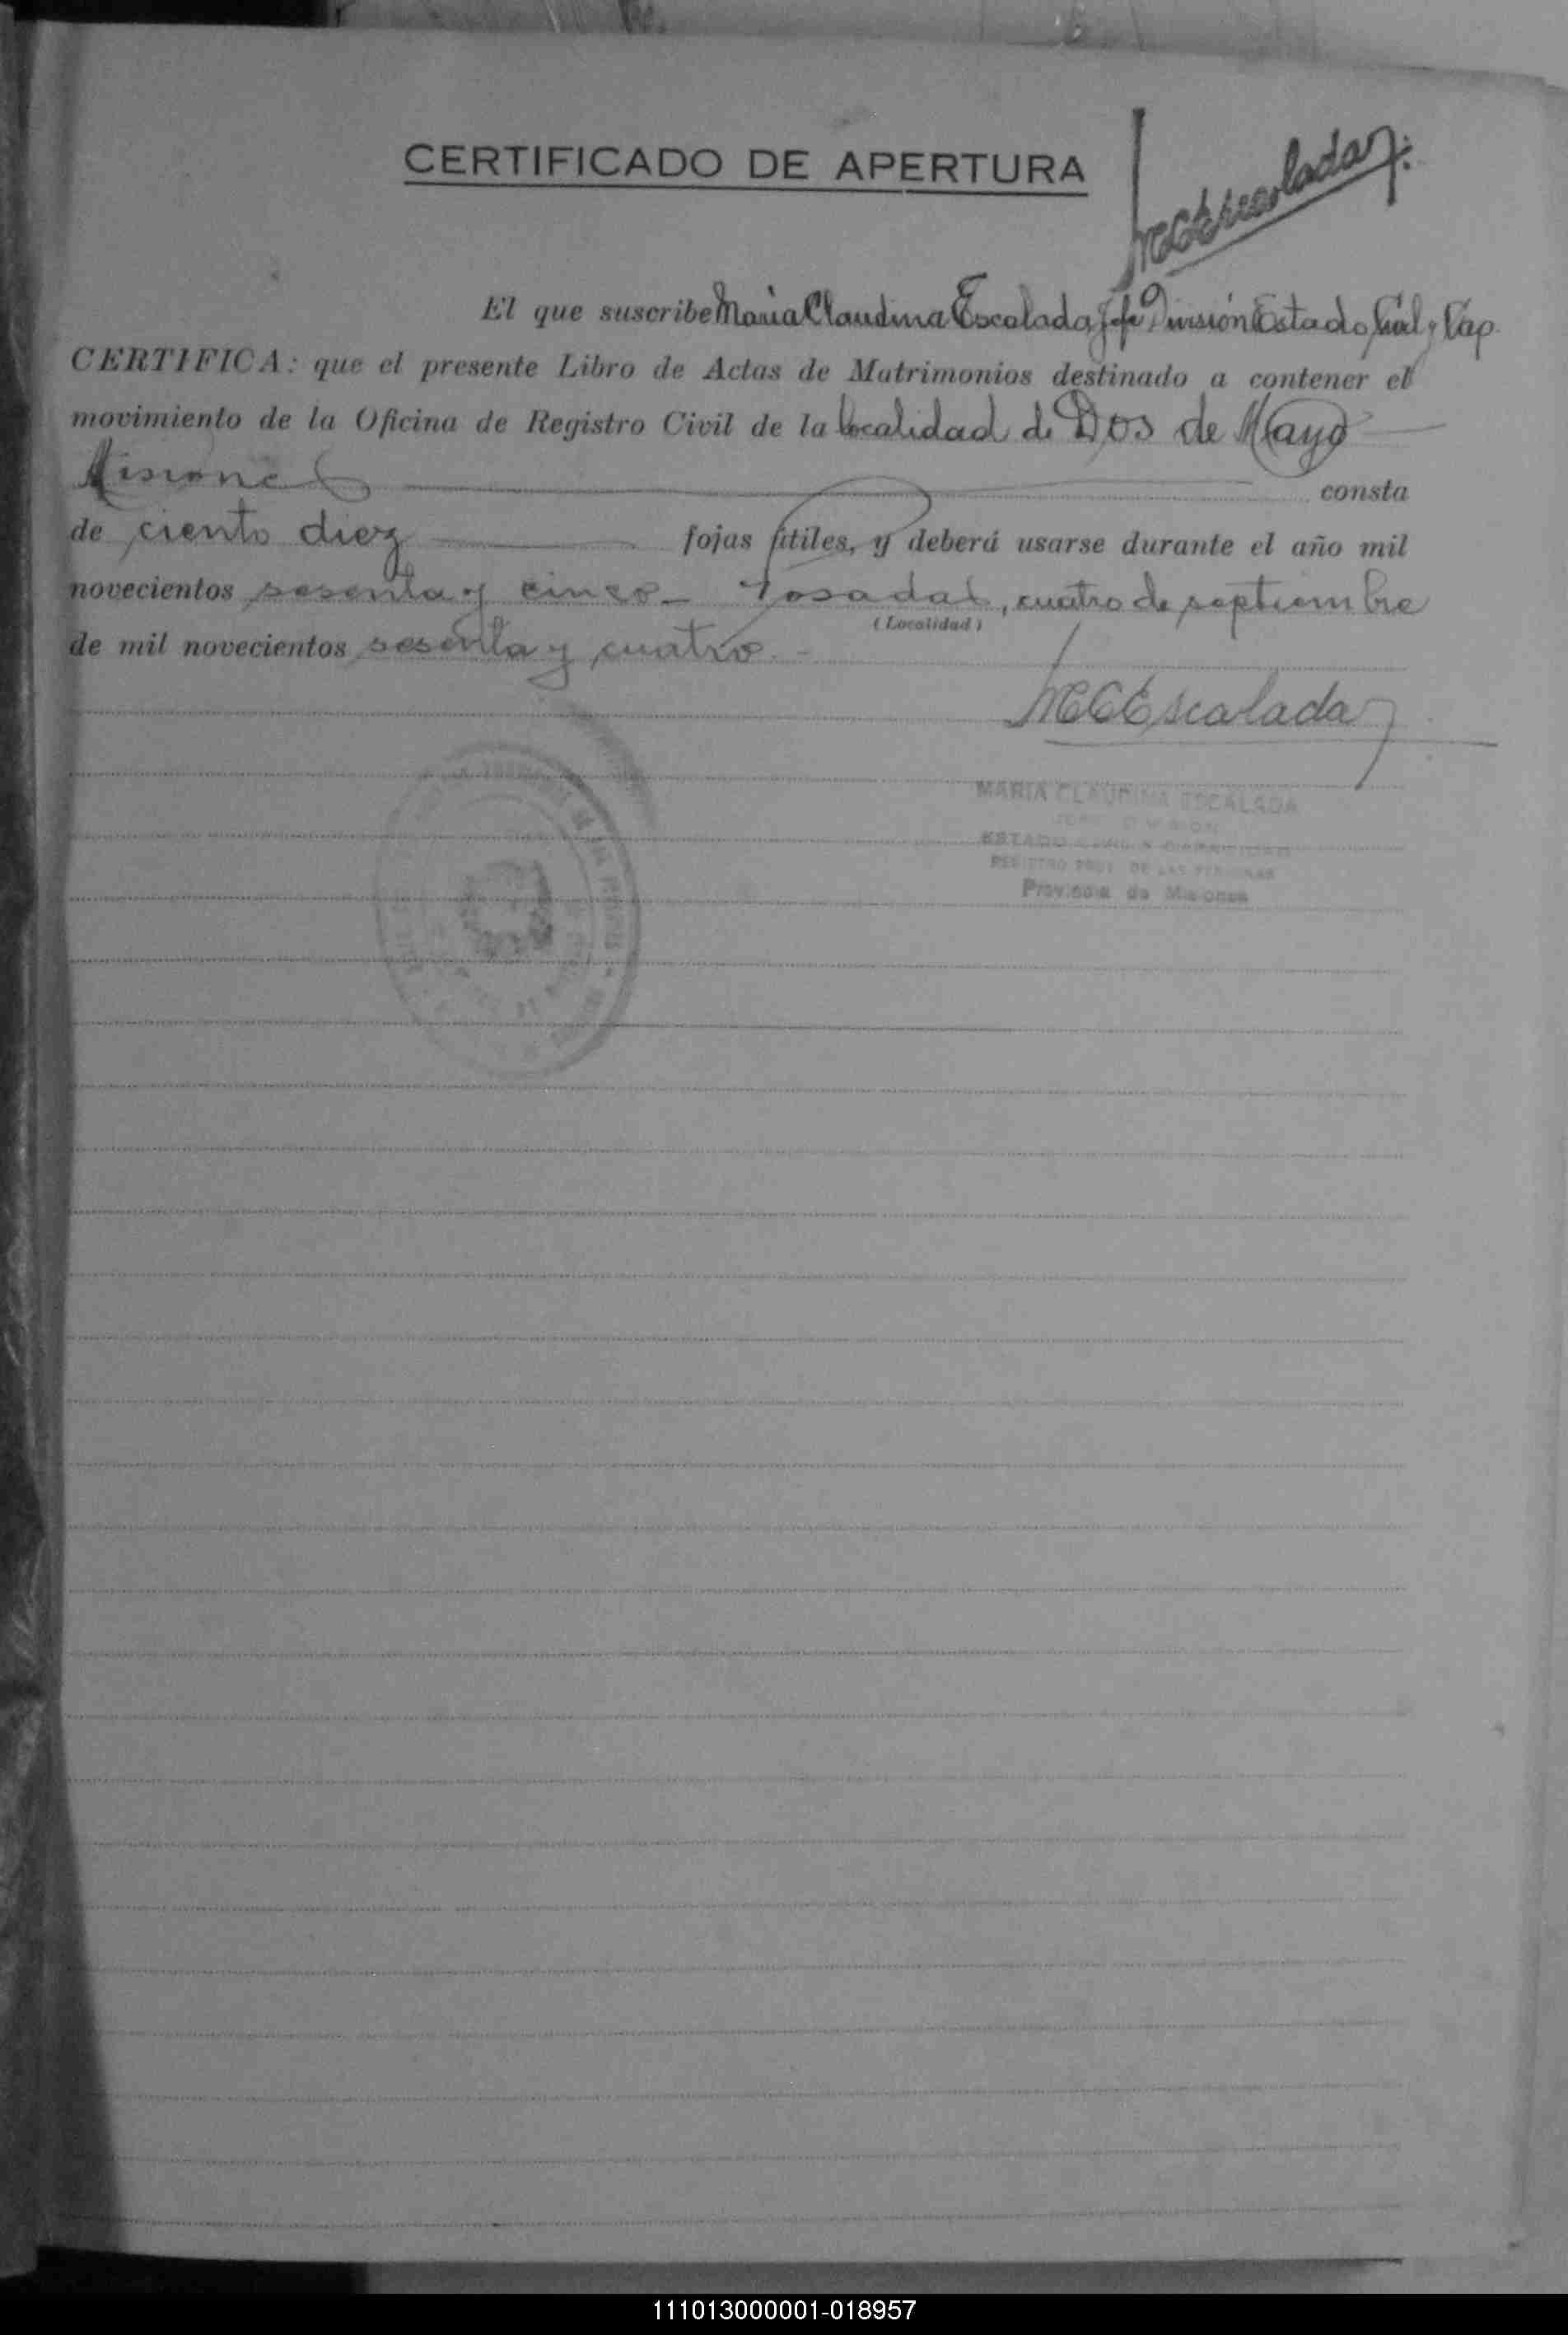 CERTIFICADO DE APERTURA
MCEscalada
El que suscribe Maria Claudina Escalada, Jefe División Estado Civil y Cap.
CERTIFICA: que el presente Libro de Actas de Matrimonios destinado a contener el
movimiento de la Oficina de Registro Civil de la localidad de Dos de Mayo
Misiones consta
de ciento diez fojas útiles, y deberá usarse durante el año mil
novecientos sesenta y cinco - Posadas, cuatro de septiembre
(Localidad)
de mil novecientos sesenta y cuatro. -
MCEscalada
MARIA CLAUDINA ESCALADA
JEFE DIVISION
ESTADO CIVIL Y CAPACIDAD
REGISTRO PROV. DE LAS PERSONAS
Provincia de Misiones
111013000001-018957